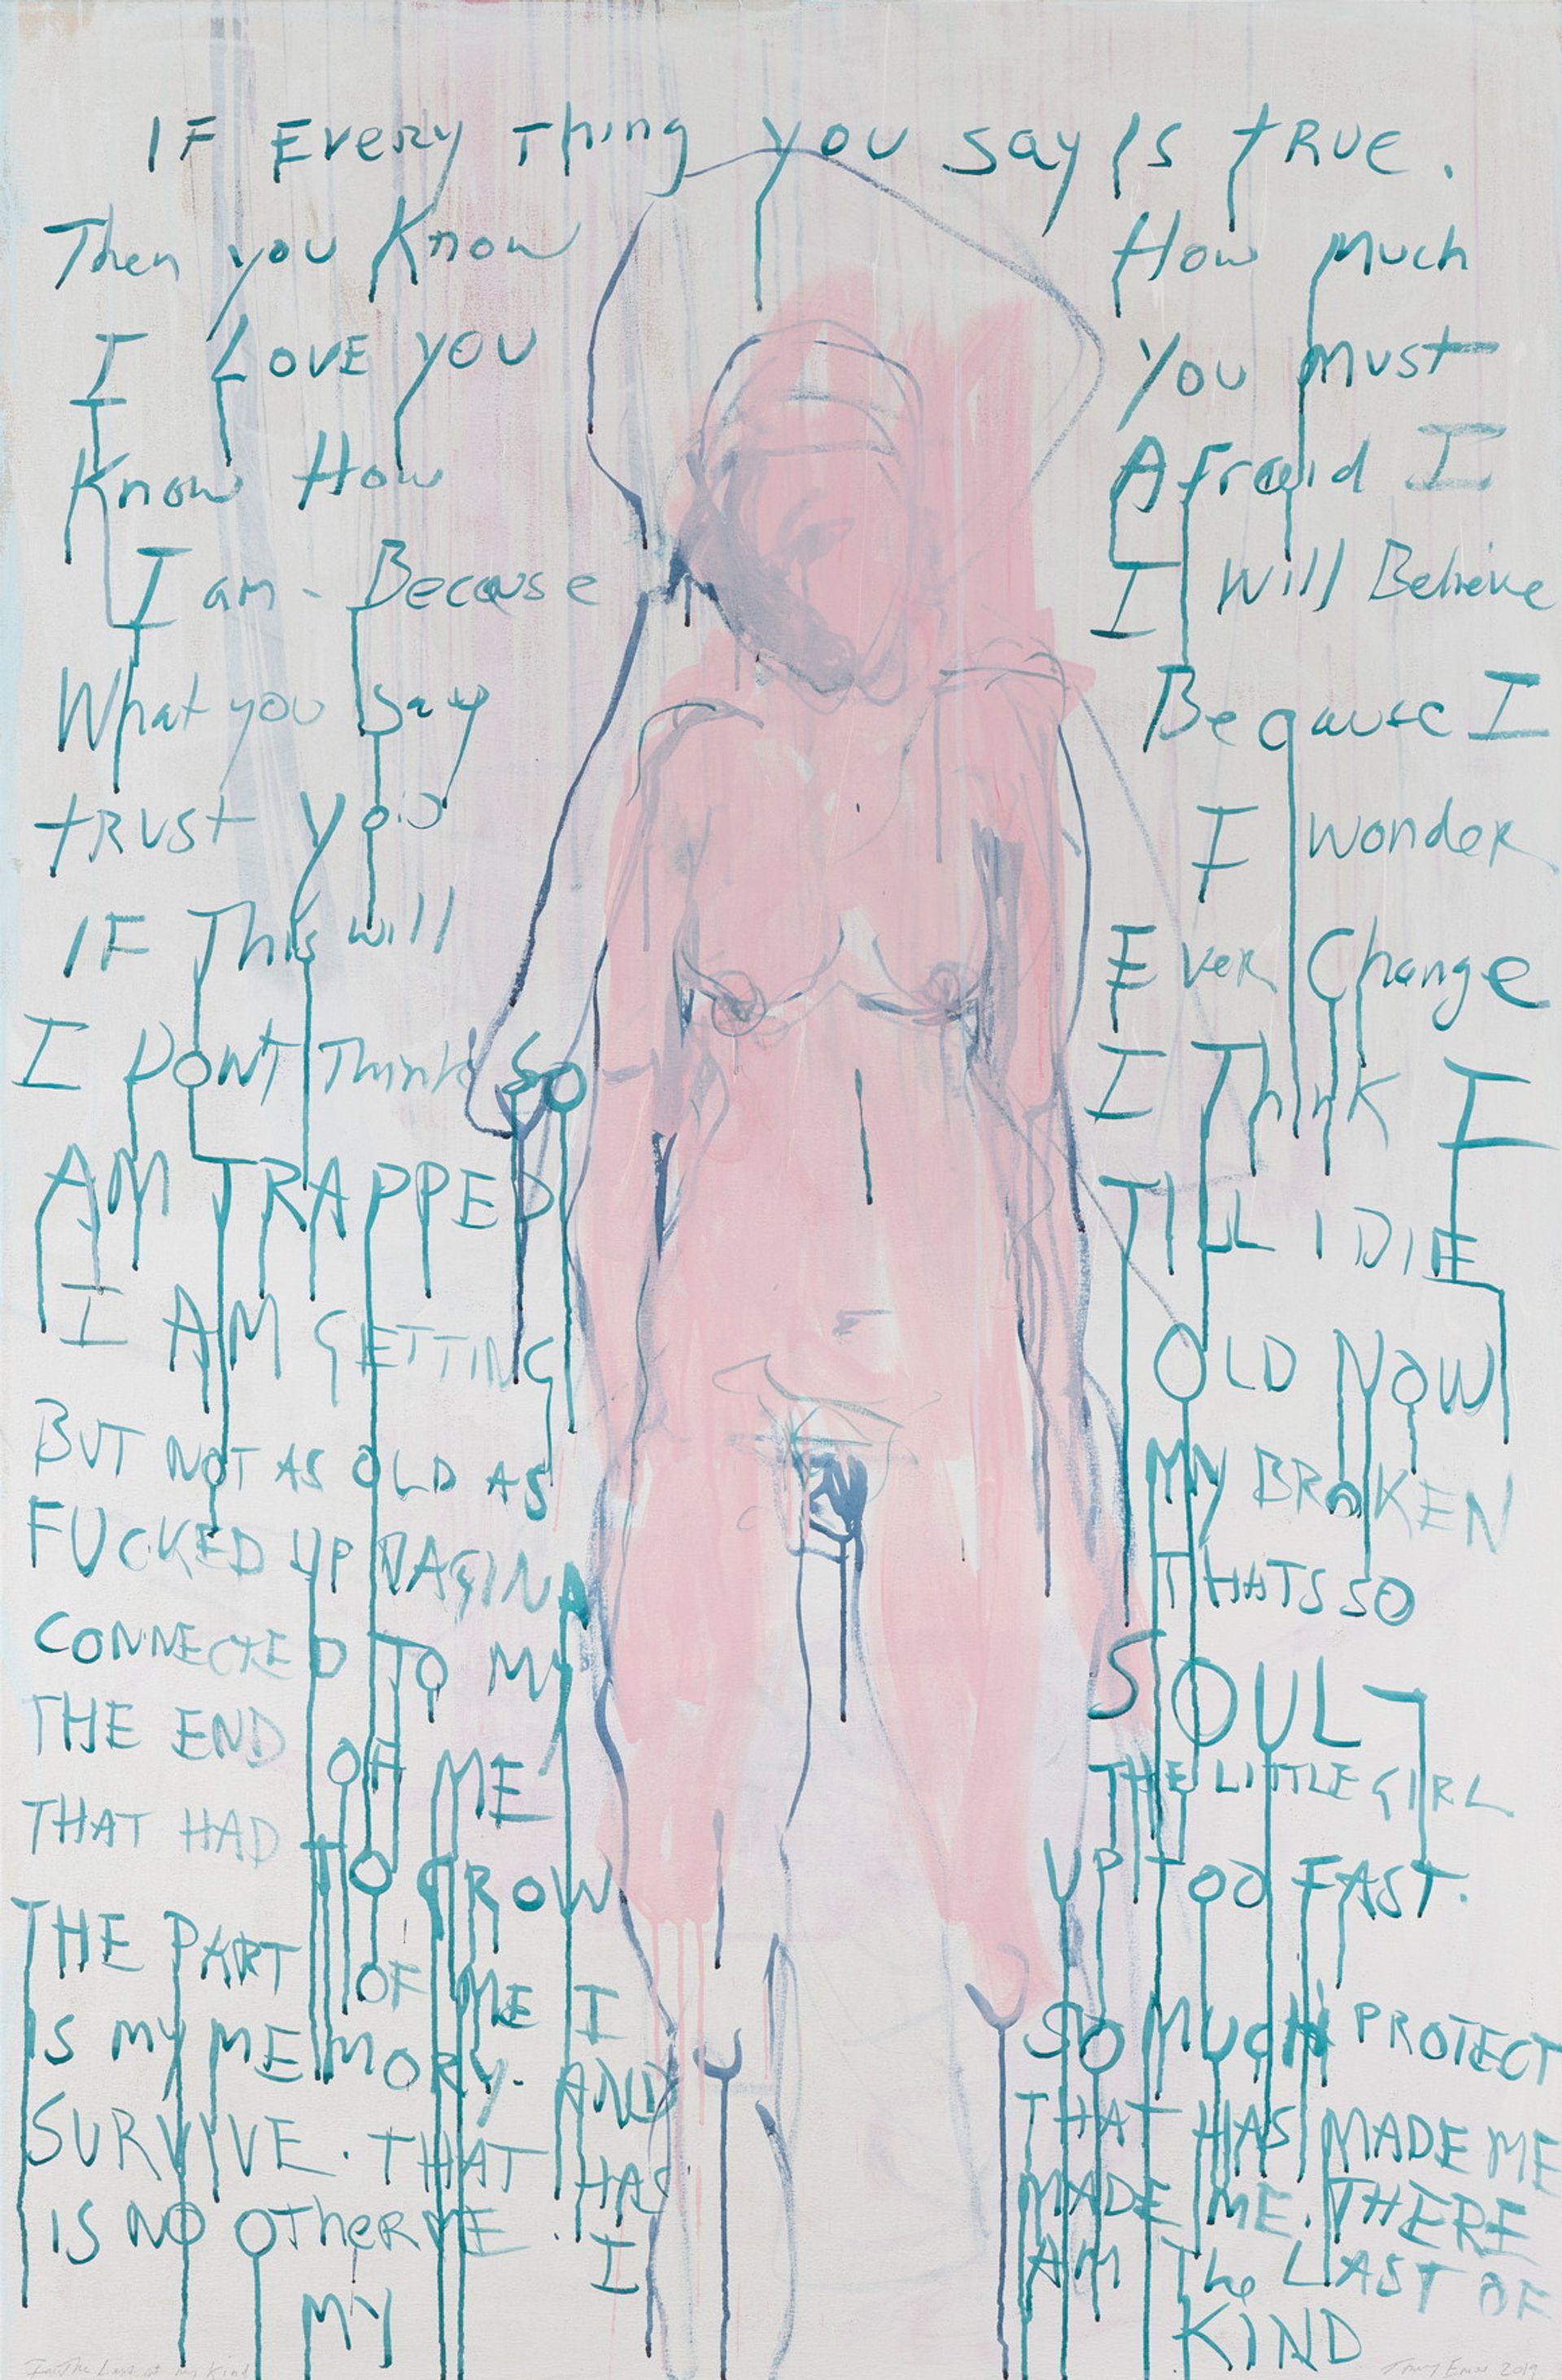 IF EVERY Thing you say is tRUE.
Then you Know How Much
I LOVE YOU You Must
Know How Afraid I
I am - Because I Will Believe
What you say Because I
tRUSt you I wonder
IF This will Ever Change
I DONT Think So I Think I
AM TRAPPED TILL I DIE
I AM GETTING OLD NOW
BUT NOT AS OLD AS MY BROKEN
FUCKED UP VAGINA THATS SO
CONNECTED TO MY SOUL -
THE END OF ME THE LITTLE GIRL
THAT HAD TO GROW UP TOO FAST.
THE PART OF ME I SO MUCH PROTECT
IS MY MEMORY. AND THAT HAS MADE ME
SURVIVE. THAT HAS MADE ME. THERE
IS NO OTher ME. I AM The LAST OF
MY KIND
I am The Last of my Kind Tracey Emin 2019